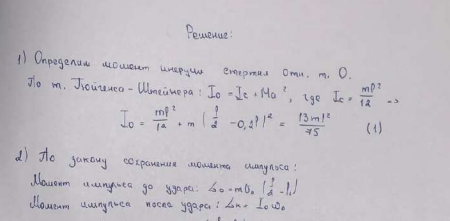 Решение:
1) Определим момент инерции стержня отн. т. O.
По т. Гюйгенса - Штейнера: I₀ = Ic + Ma², где Ic = ml²/12 ->
I₀ = ml²/12 + m (l/2 - 0,2l)² = 13ml²/75 (1)
2) По закону сохранения момента импульса:
Момент импульса до удара: L₀ = mv₀ (l/2 - l₁)
Момент импульса после удара: Lк = I₀ω₀